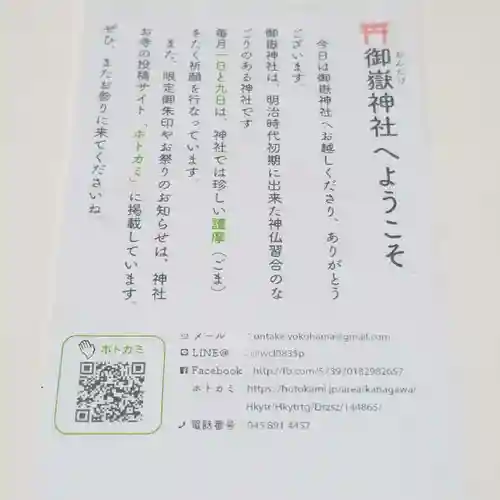 おんたけ
御嶽神社へようこそ
今日は御嶽神社へお越しくださり、ありがとう
ございます。
御嶽神社は、明治時代初期に出来た神仏習合のな
ごりのある神社です
毎月一日と九日は、神社では珍しい護摩（ごま）
をたく祈願を行なっています。
また、限定御朱印やお祭りのお知らせは、神社
お寺の投稿サイト「ホトカミ」に掲載しています。
ぜひ、またお参りに来てくださいね
ホトカミ
メール ontake.yokohama@gmail.com
LINE@
Facebook
ホトカミ https://hotokami.jp/area/kanagawa/
Hkytr/Hkytrtg/Drzsz/144865/
電話番号 045 891 4457